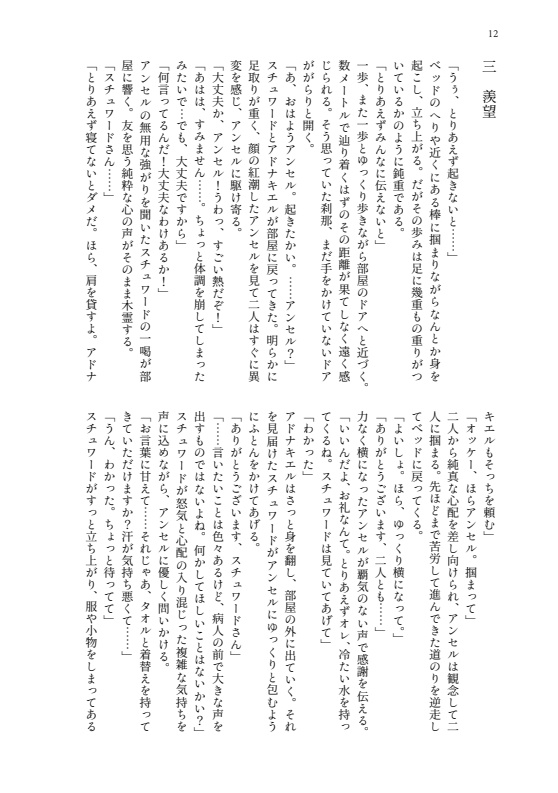 12
三　羨望
「うぅ、とりあえず起きないと……」
ベッドのへりや近くにある棒に掴まりながらなんとか身を
起こし、立ち上がる。だがその歩みは足に幾重もの重りがつ
いているかのように鈍重である。
「とりあえずみんなに伝えないと」
一歩、また一歩とゆっくり歩きながら部屋のドアへと近づく。
数メートルで辿り着くはずのその距離が果てしなく遠く感
じられる。そう思っていた刹那、まだ手をかけていないドア
ががらりと開く。
「あ、おはようアンセル。起きたかい。……アンセル？」
スチュワードとアドナキエルが部屋に戻ってきた。明らかに
足取りが重く、顔の紅潮したアンセルを見て二人はすぐに異
変を感じ、アンセルに駆け寄る。
「大丈夫か、アンセル！うわっ、すごい熱だぞ！」
「あはは、すみません……。ちょっと体調を崩してしまった
みたいで…でも、大丈夫ですから」
「何言ってるんだ！大丈夫なわけあるか！」
アンセルの無用な強がりを聞いたスチュワードの一喝が部
屋に響く。友を思う純粋な心の声がそのまま木霊する。
「スチュワードさん……」
「とりあえず寝てないとダメだ。ほら、肩を貸すよ。アドナ
キエルもそっちを頼む」
「オッケー、ほらアンセル。掴まって」
二人から純真な心配を差し向けられ、アンセルは観念して二
人に掴まる。先ほどまで苦労して進んできた道のりを逆走し
てベッドに戻ってくる。
「よいしょ。ほら、ゆっくり横になって。」
「ありがとうございます、二人とも……」
力なく横になったアンセルが覇気のない声で感謝を伝える。
「いいんだよ、お礼なんて。とりあえずオレ、冷たい水を持っ
てくるね。スチュワードは見ていてあげて」
「わかった」
アドナキエルはさっと身を翻し、部屋の外に出ていく。それ
を見届けたスチュワードがアンセルにゆっくりと包むよう
にふとんをかけてあげる。
「ありがとうございます、スチュワードさん」
「……言いたいことは色々あるけど、病人の前で大きな声を
出すものではないよね。何かしてほしいことはないかい？」
スチュワードが怒気と心配の入り混じった複雑な気持ちを
声に込めながら、アンセルに優しく問いかける。
「お言葉に甘えて……それじゃあ、タオルと着替えを持って
きていただけますか？汗が気持ち悪くて……」
「うん、わかった。ちょっと待ってて」
スチュワードがすっと立ち上がり、服や小物をしまってある